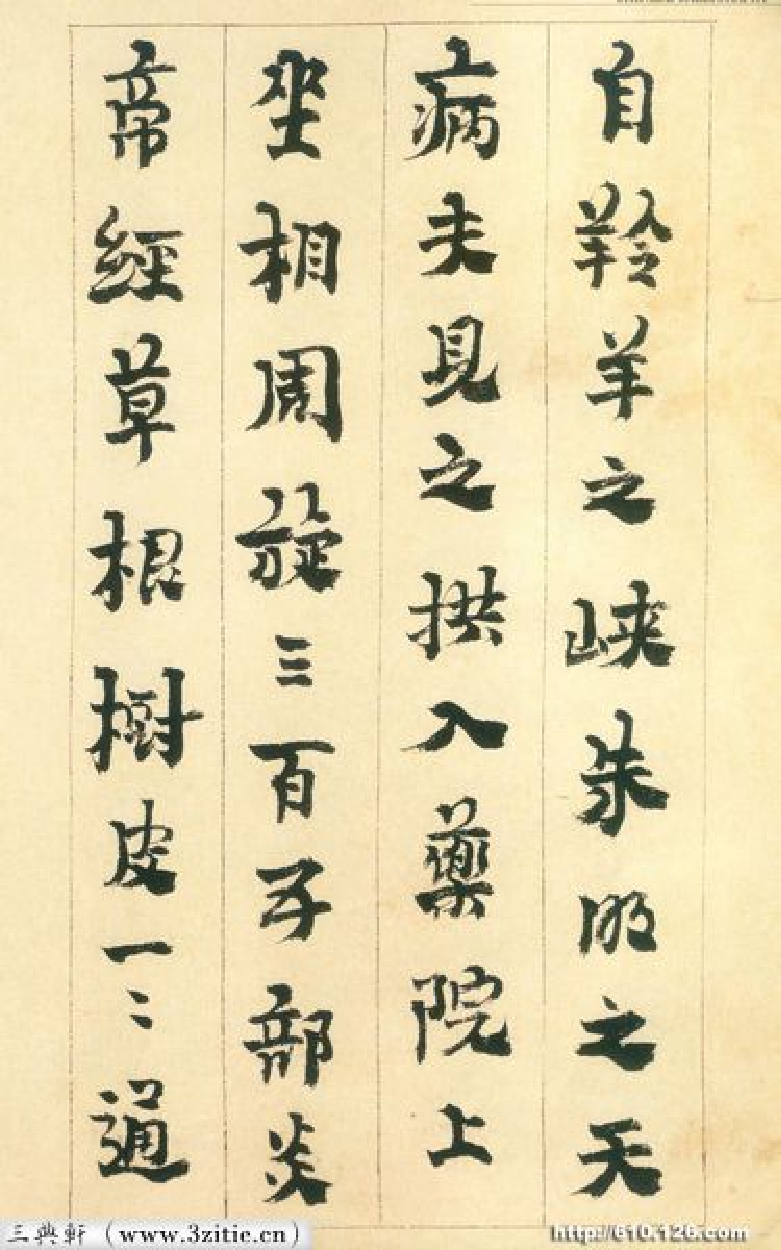 自羚羊之峡朱明之天
病夫見之拱入藥院上
坐相周旋三百子部炎
帝經草根樹皮一二通
三典軒（www.3zitie.cn）
http://610.126.com